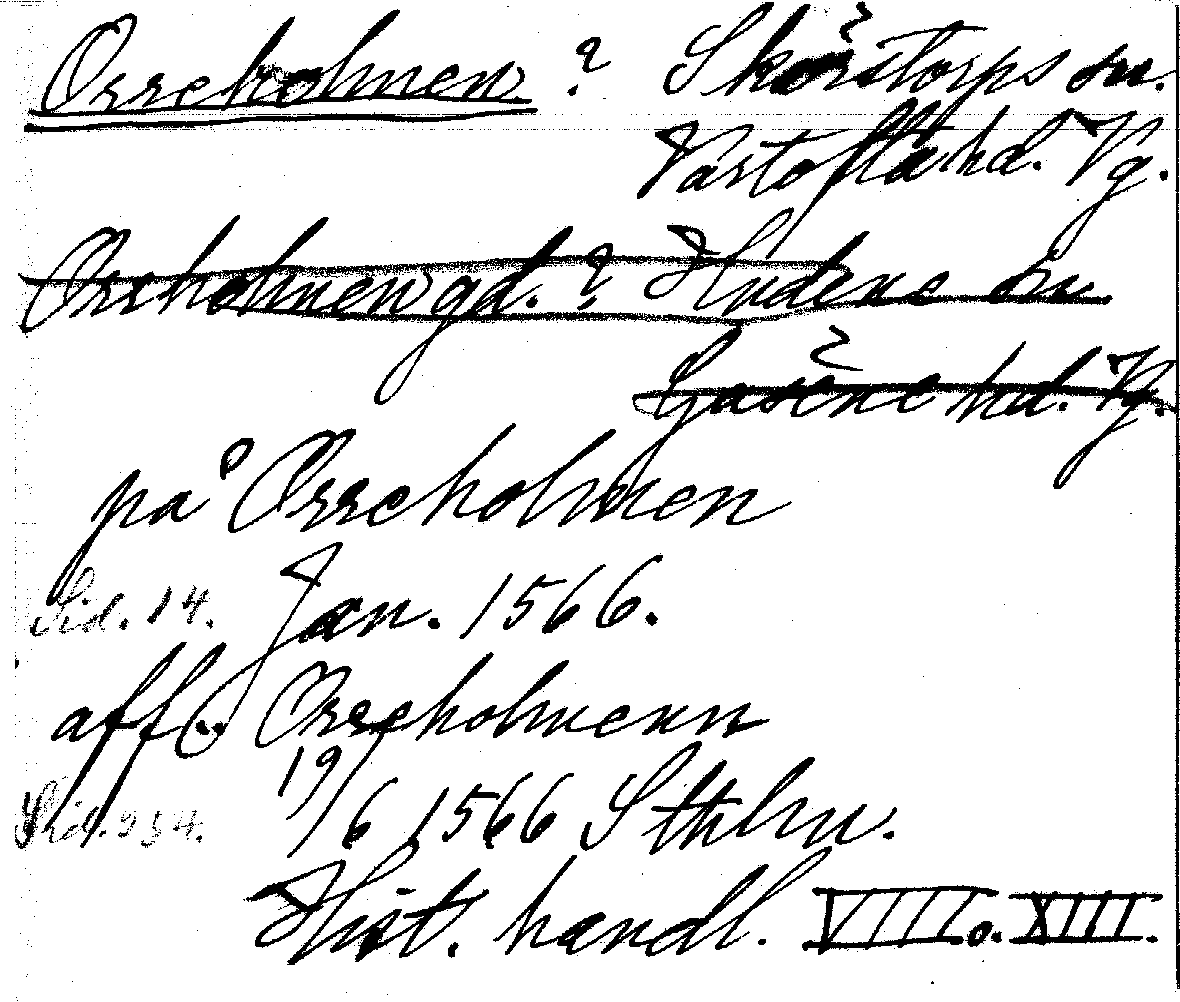 Orreholmen? Skörstorps sn.
Vartofta hd. Vg.
Orreholmen gd.? Hudene sn
Gäsene hd. Vg.
på Orreholmen
Sid. 14. Jan. 1566.
aff Orreholmenn
Sid. 934. 19/6 1566 Sthlm.
Hist. handl. VIII o. XIII.